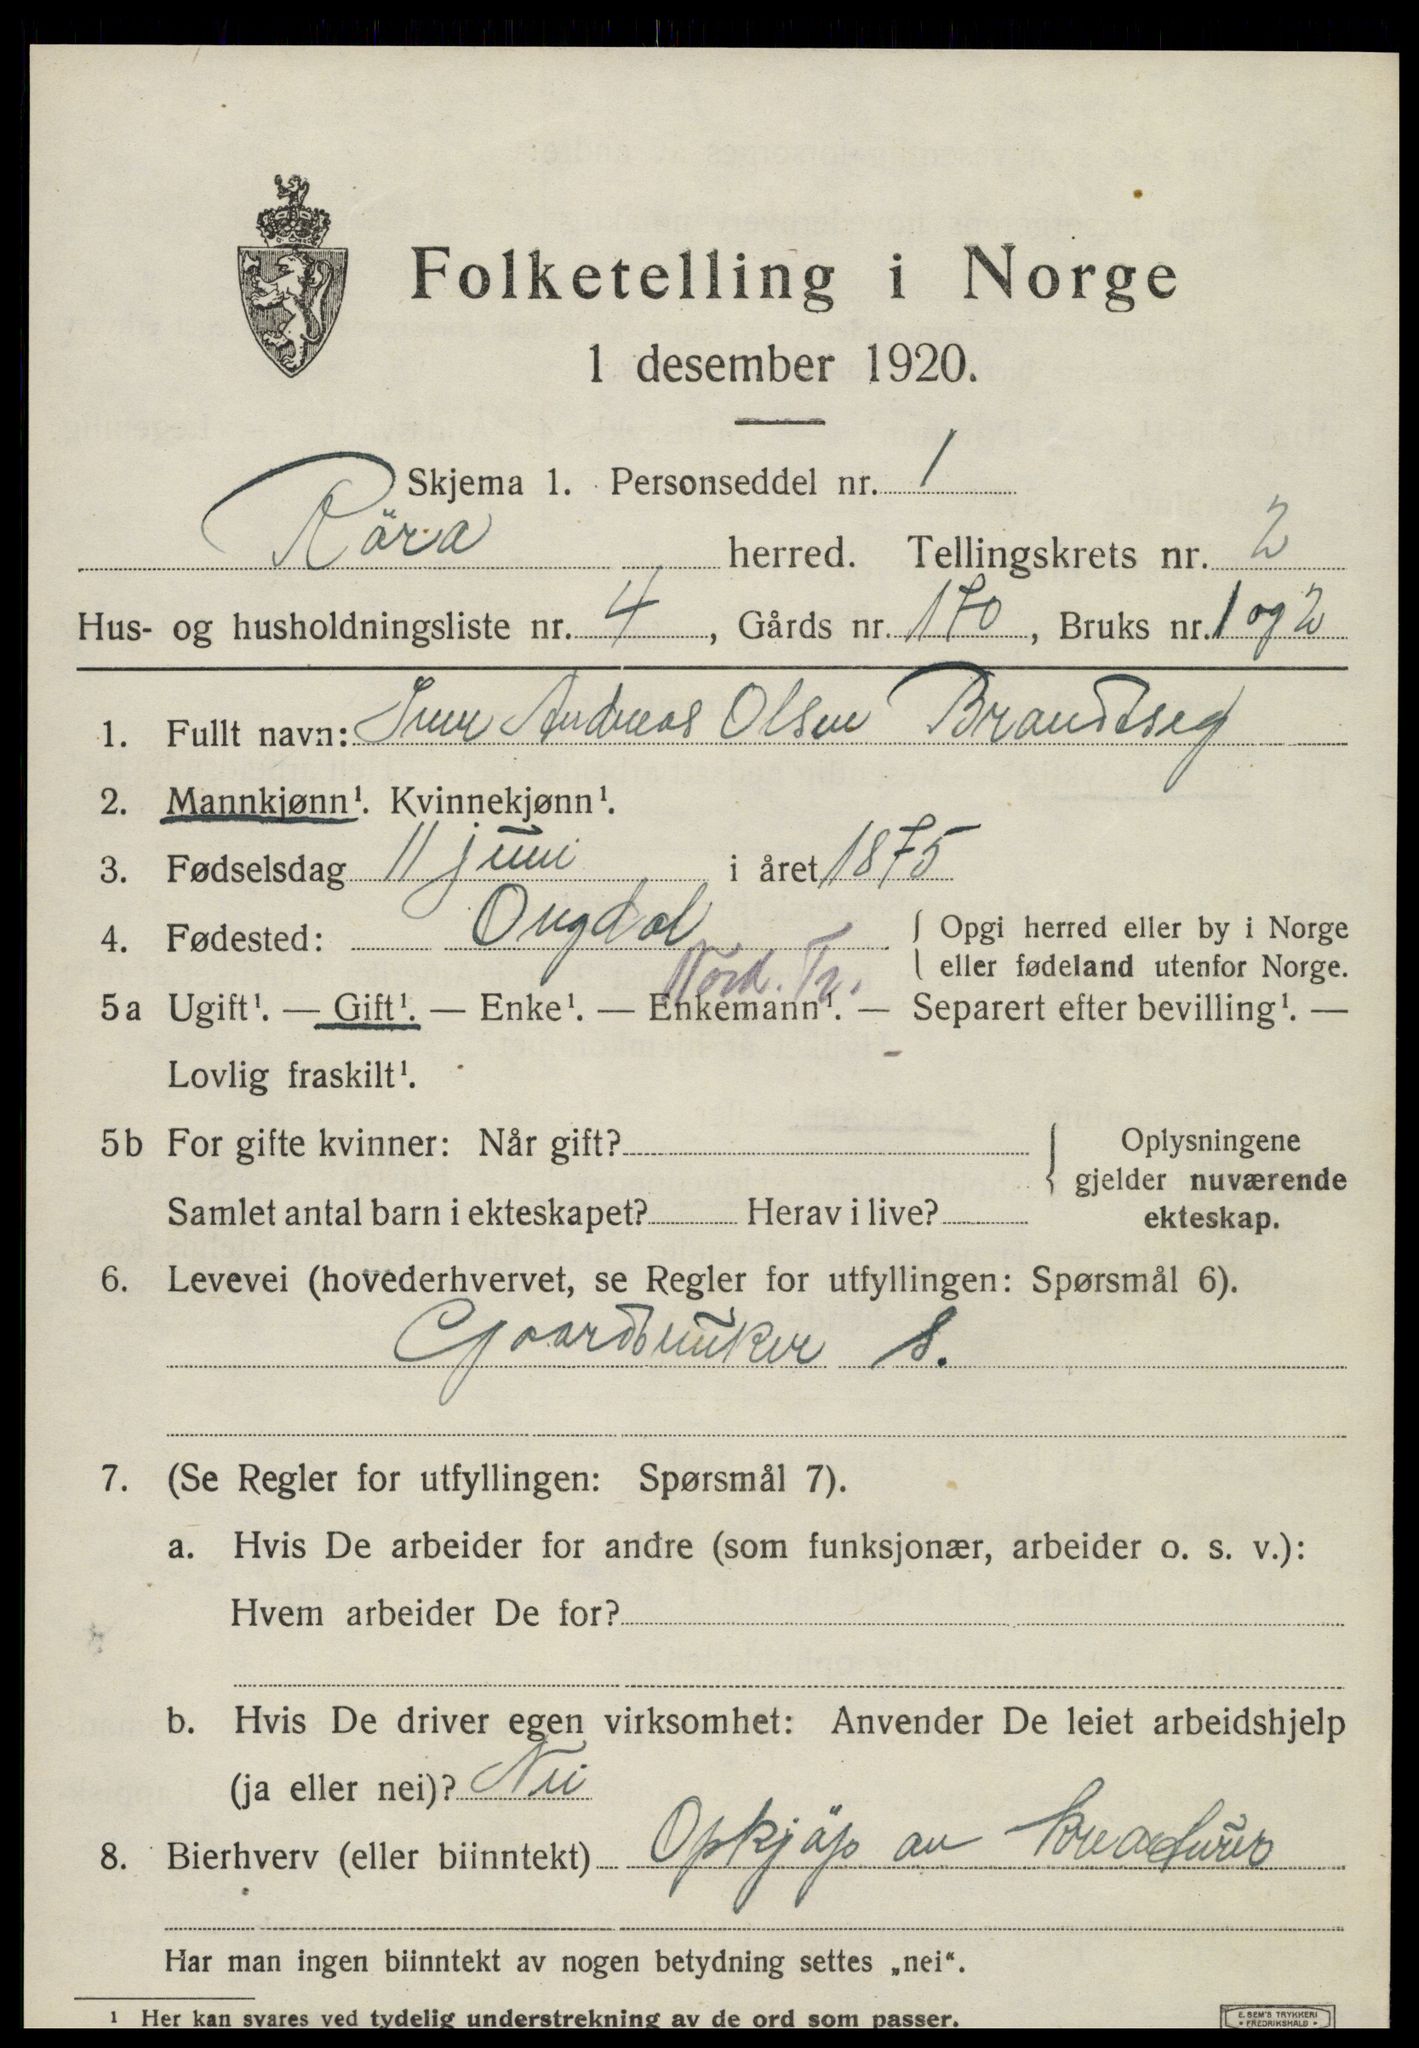 Folketelling i Norge
1 desember 1920.
Skjema 1. Personseddel nr. 1
Röra herred. Tellingskrets nr. 2
Hus- og husholdningsliste nr. 4, Gårds nr. 170, Bruks nr. 1 og 2
1. Fullt navn: Iver Andreas Olsen Brandtseg
2. Mannkjønn¹. Kvinnekjønn¹.
3. Fødselsdag 11 juni i året 1875
4. Fødested: Ongdal { Opgi herred eller by i Norge
eller fødeland utenfor Norge.
Nord. Tr.
5a Ugift¹. — Gift¹. — Enke¹. — Enkemann¹. — Separert efter bevilling¹. —
Lovlig fraskilt¹.
5b For gifte kvinner: Når gift? { Oplysningene
gjelder nuværende
Samlet antal barn i ekteskapet? Herav i live? ekteskap.
6. Levevei (hovederhvervet, se Regler for utfyllingen: Spørsmål 6).
Gaardbruker S.
7. (Se Regler for utfyllingen: Spørsmål 7).
a. Hvis De arbeider for andre (som funksjonær, arbeider o. s. v.):
Hvem arbeider De for?
b. Hvis De driver egen virksomhet: Anvender De leiet arbeidshjelp
(ja eller nei)? Nei
8. Bierhverv (eller biinntekt) Opkjöp av kreaturer
Har man ingen biinntekt av nogen betydning settes „nei“.
¹ Her kan svares ved tydelig understrekning av de ord som passer.
E. SEM'S TRYKKERI
• FREDRIKSHALD •